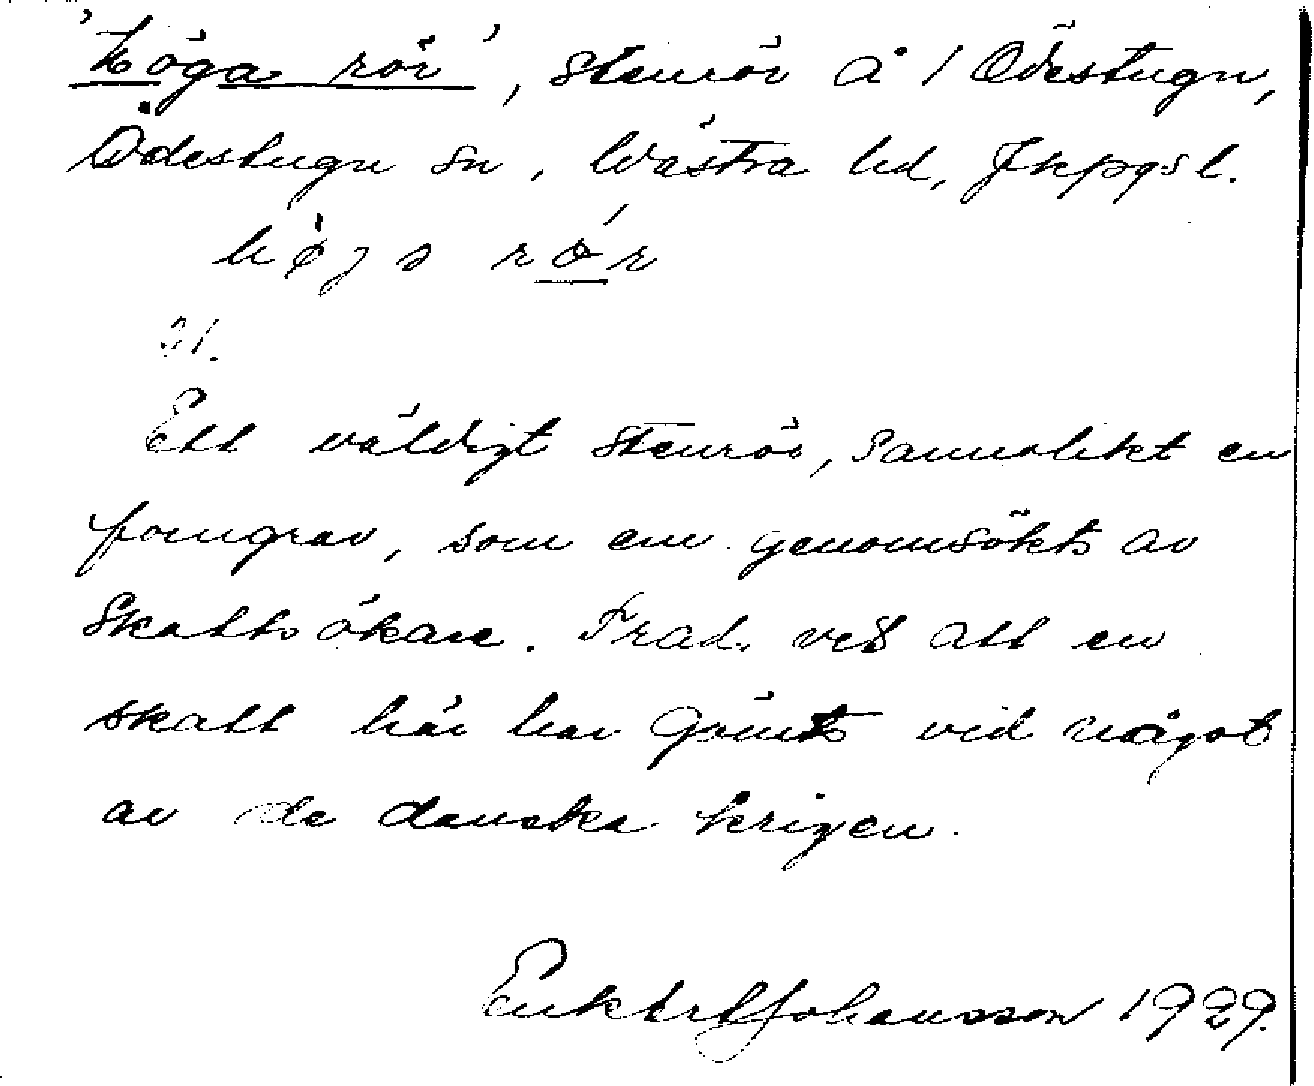 'Höga rör', stenrör å 1 Ödestugu,
Ödestugu sn, Västra hd, Jkpgs l.
høgo rör
01.
Ett väldigt stenrör, sannolikt en
forngrav, som en genomsökts av
skattsökare. Trad. vet att en
skatt här har gömts vid något
av de danska krigen.
Johansson 1929.